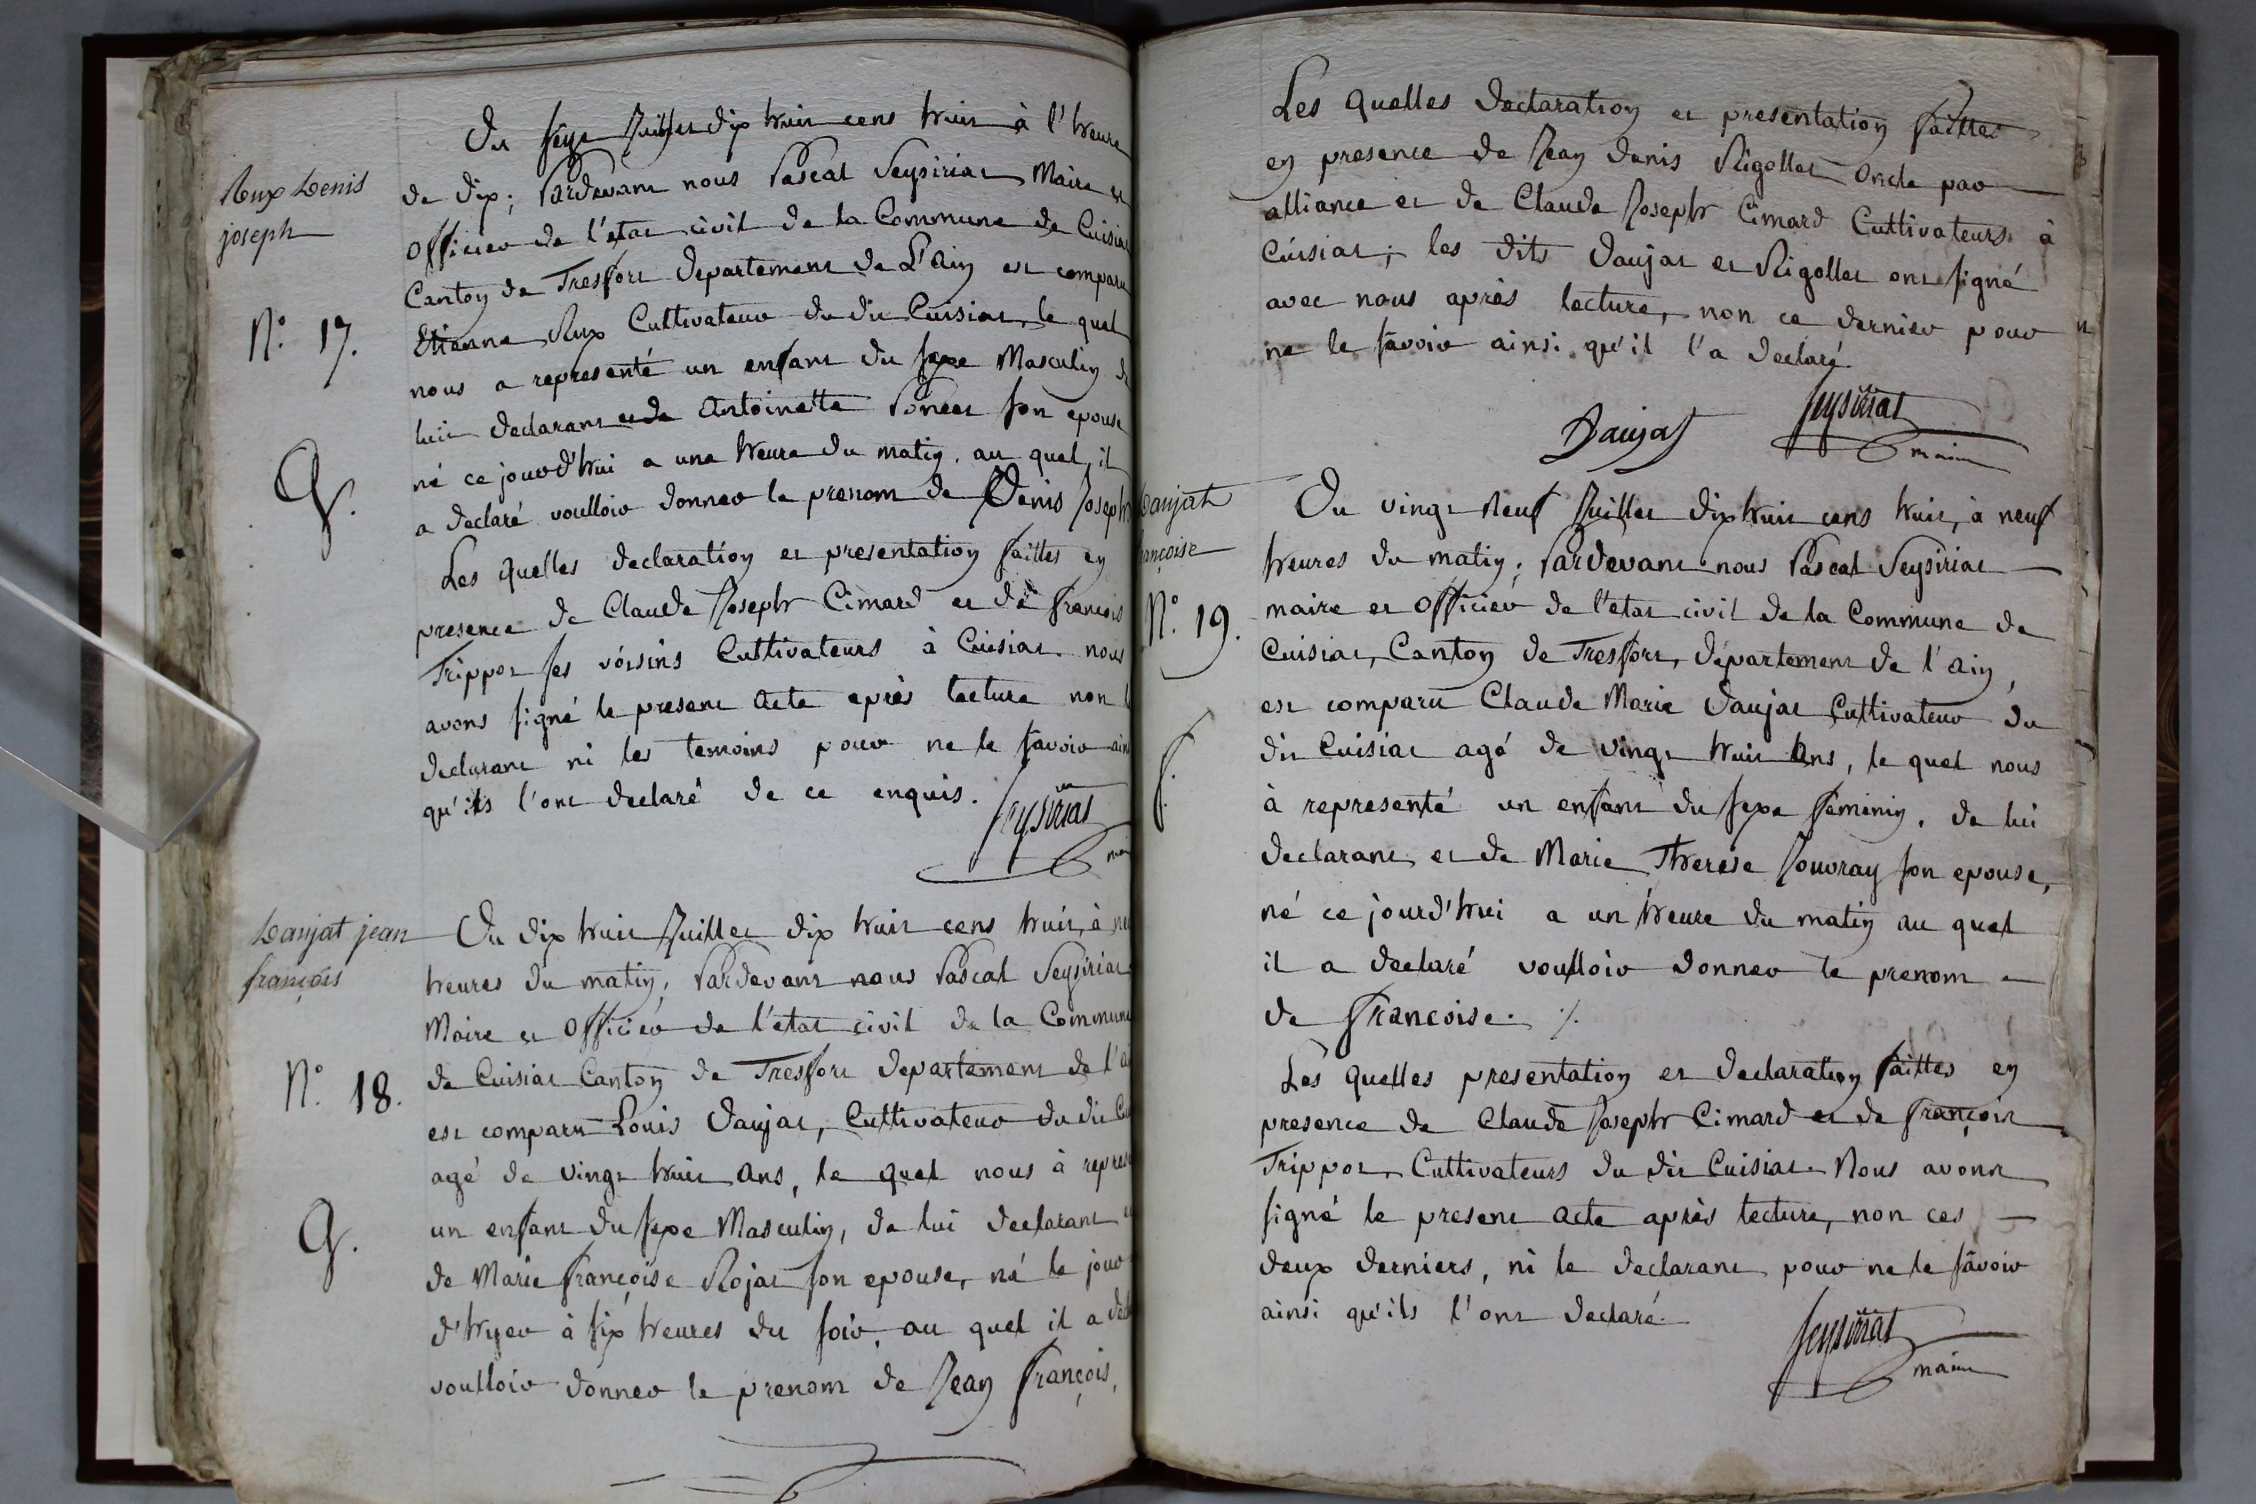 Du seize Juillet dix huit cens huit à l'heure
Rux Denis
joseph
de dix; Pardevant nous Pascal Seysiriat Maire et
officier de l'etat civil de la Commune de Cuisiat
Canton de Tresfort Departement de L'ain est comparu
N.° 17.
Etienne Rux Cultivateur du dit Cuisiat, le quel
nous a representé un enfant du sexe Masculin de
luit declarant et de Antoinette Poncet son epouse
G.
né ce jourd'hui a une heure du matin. au quel il
a declaré voulloir donner le prenom de Denis Joseph
Les quelles declaration et presentation faittes en
presence de Claude Joseph Cimard et de françois
Trippoz ses voisins Cultivateurs à Cuisiat. nous
avons signé le present acte après lecture non l
declarant ni les temoins pour ne le savoir ain
qu'ils l'ont declaré de ce enquis.
Seysiriat
mai
Daujat jean
françois
Du dix huit Juillet dix huit cens huit, à ne
heures du matin, Pardevant nous Pascal Seysiriat
Maire et officier de l'etat civil de la Commune
N.° 18.
de Cuisiat Canton de Tresfort departement de l'ai
est comparu Louis Daujat, Cultivateur du dit Cui
agé de vingt huit ans, le quel nous à represe
G.
un enfant du sexe Masculin, de lui declarant e
de Marie françoise Rojat son epouse, né le jour
d'hyer à six heures du soir, au quel il a decl
voulloir donner le prenom de Jean françois,
Les quelles declaration et presentation faittes
en presence de Jean denis Rigollet oncle par
alliance et de Claude Joseph Cimard Cultivateurs à
Cuisiat; les dits Daujat et Rigollet ont signé
avec nous après lecture, non ce dernier pour
ne le savoir ainsi qu'il l'a declaré.
Daujat
Seysiriat
maire
Daujat
françoise
N.° 19.
f.
Du vingt neuf Juillet dix huit cens huit, à neuf
heures du matin; Pardevant nous Pascal Seysiriat
maire et officier de l'etat civil de la Commune de
Cuisiat, Canton de Tresfort, département de l'ain,
est comparu Claude Marie Daujat Cultivateur du
dit Cuisiat agé de vingt huit ans, le quel nous
à representé un enfant du sexe feminin, de lui
declarant et de Marie Therese Jouvray son epouse,
né ce jourd'hui a un heure du matin au quel
il a declaré voulloir donner le prenom
de francoise. ./.
Les quelles presentation et declaration faittes en
presence de Claude Joseph Cimard et de françois
Trippoz, Cultivateurs du dit Cuisiat. Nous avons
signé le present acte après lecture, non ces
deux derniers, ni le declarant pour ne le savoir
ainsi qu'ils l'ont declaré.
Seysiriat
maire